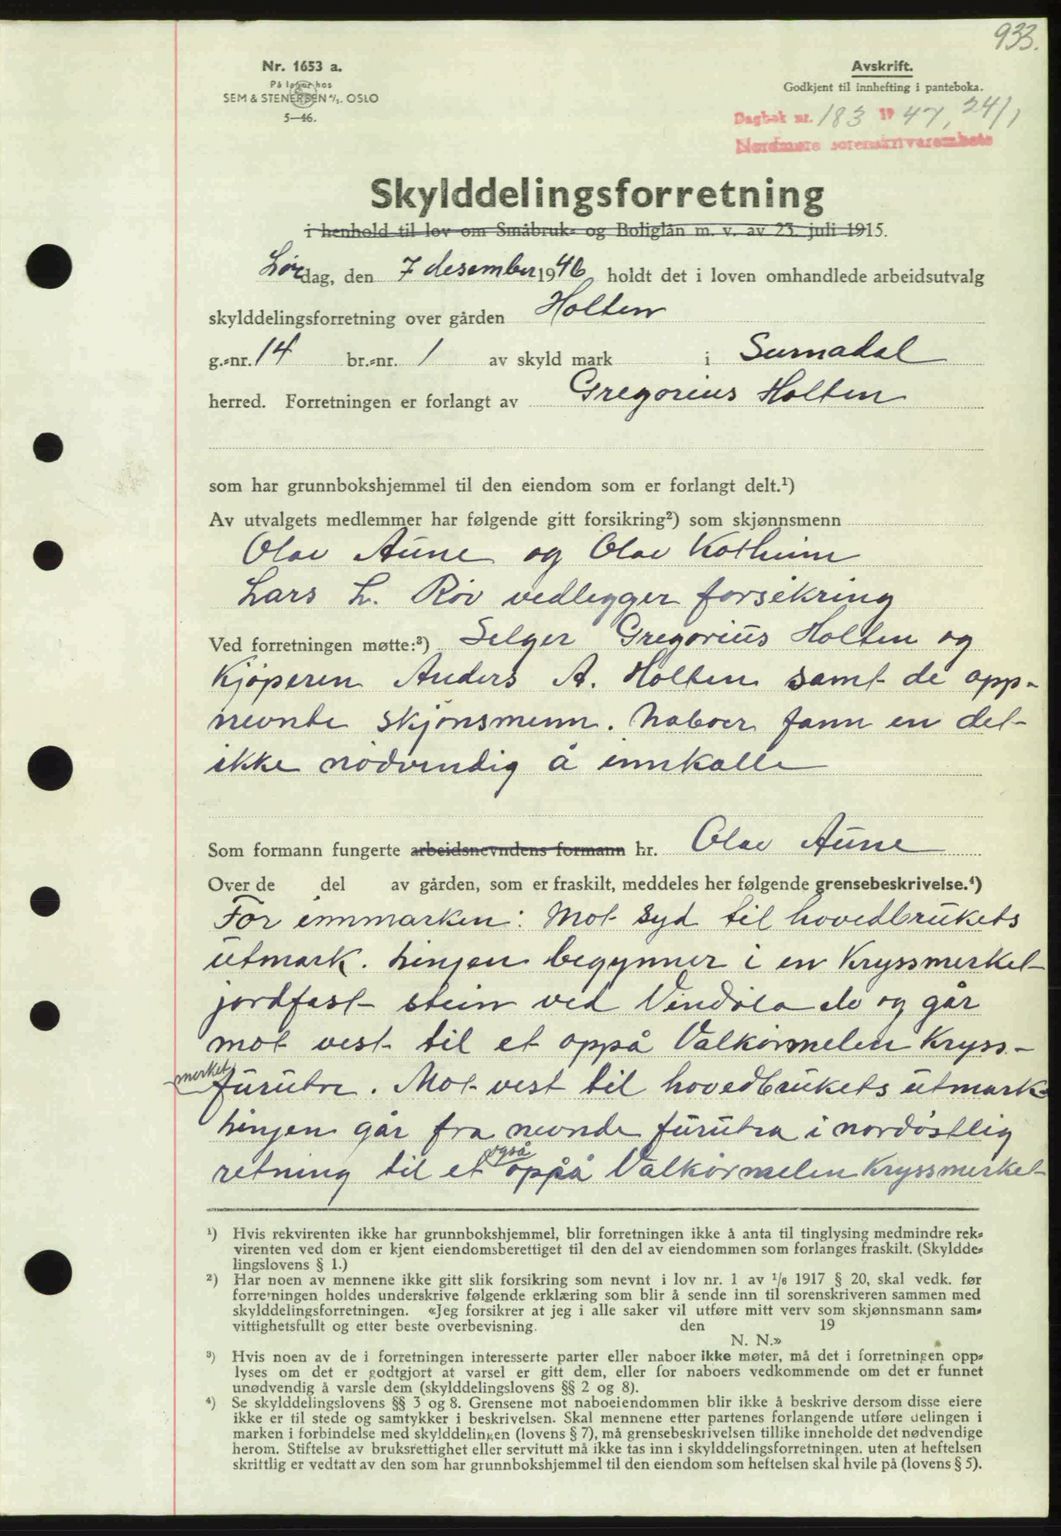 933.
Nr. 1653 a.
På lager hos
SEM & STENERSEN A/S. OSLO
5—46.
Avskrift.
Godkjent til innhefting i panteboka.
Dagbok nr. 183 19 47, 24/1
Nordmøre sorenskriverembete
Skylddelingsforretning
i henhold til lov om Småbruk- og Boliglån m. v. av 23. juli 1915.
Lørdag, den 7 desember 1946 holdt det i loven omhandlede arbeidsutvalg
skylddelingsforretning over gården Holten
g.-nr. 14 br.-nr. 1 av skyld mark i Surnadal
herred. Forretningen er forlangt av Gregorius Holten
som har grunnbokshjemmel til den eiendom som er forlangt delt.¹)
Av utvalgets medlemmer har følgende gitt forsikring²) som skjønnsmenn
Olav Aune og Olav Kotheim
Lars L. Røv vedlegger forsikring
Ved forretningen møtte:³) Selger Gregorius Holten og
Kjøperen Anders A. Holten samt de opp-
nevnte skjønsmenn. Naboer fann en det
ikke nödvendig å innkalle
Som formann fungerte arbeidsnevndens formann hr. Olav Aune
Over de del av gården, som er fraskilt, meddeles her følgende grensebeskrivelse.⁴)
For innmarken: Mot syd til hovedbrukets
utmark. Linjen begynner i en Kryssmerket
jordfast stein ved Vindöla elv og går
mot vest til et oppå Valkörmelen Kryss-
merket furutre. Mot vest til hovedbrukets utmark
Linjen går fra nevnde furutra i nordöstlig
retning til et også oppå Valkörmelen Kryssmerket
¹) Hvis rekvirenten ikke har grunnbokshjemmel, blir forretningen ikke å anta til tinglysing medmindre rek-
virenten ved dom er kjent eiendomsberettiget til den del av eiendommen som forlanges fraskilt. (Skyldde-
lingslovens § 1.)
²) Har noen av mennene ikke gitt slik forsikring som nevnt i lov nr. 1 av 1/6 1917 § 20, skal vedk. før
forretningen holdes underskrive følgende erklæring som blir å sende inn til sorenskriveren sammen med
skylddelingsforretningen. «Jeg forsikrer at jeg i alle saker vil utføre mitt verv som skjønnsmann sam-
vittighetsfullt og etter beste overbevisning. den 19
N. N.»
³) Hvis noen av de i forretningen interesserte parter eller naboer ikke møter, må det i forretningen opp-
lyses om det er godtgjort at varsel er gitt dem, eller for naboers vedkommende om det er funnet
unødvendig å varsle dem (skylddelingslovens §§ 2 og 8).
⁴) Se skylddelingslovens §§ 3 og 8. Grensene mot naboeiendommen blir ikke å beskrive dersom disse eiere
ikke er til stede og samtykker i beskrivelsen. Skal mennene etter partenes forlangende utføre delingen i
marken i forbindelse med skylddelingen (lovens § 7), må grensebeskrivelsen tillike inneholde det nødvendige
herom. Stiftelse av bruksrettighet eller servitutt må ikke tas inn i skylddelingsforretningen, uten at heftelsen
skriftlig er vedtatt av den som har grunnbokshjemmel til den eiendom som heftelsen skal hvile på (lovens § 5).